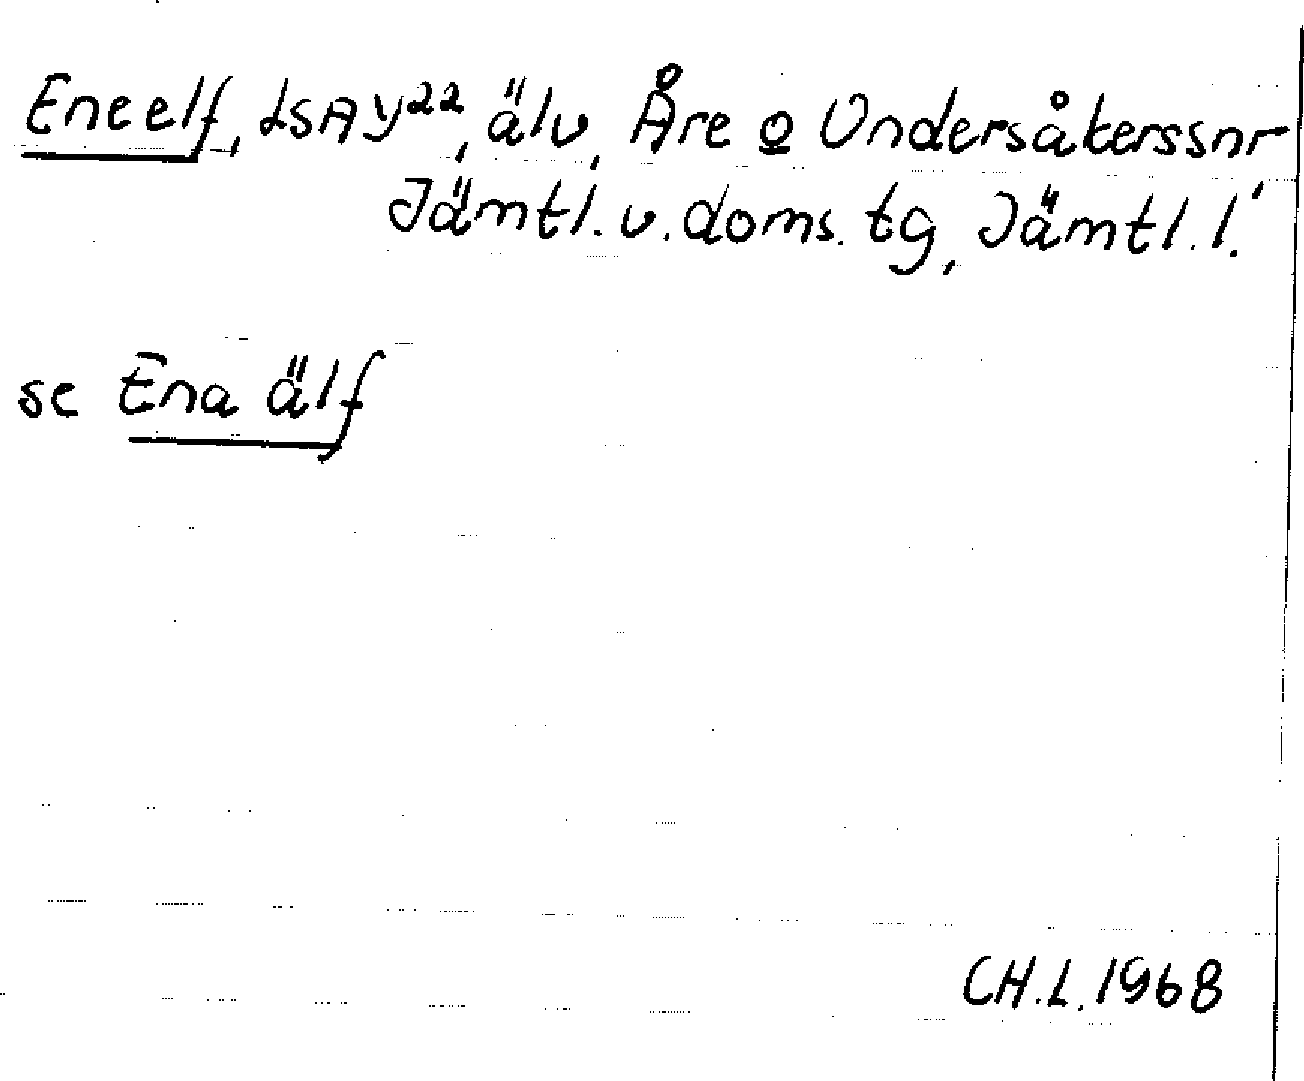 Eneelf, LSA Y22, älv, Åre o Undersåkerssnr,
Jämtl. v. doms. tg, Jämtl. l.
se Ena älf
CH.L. 1968